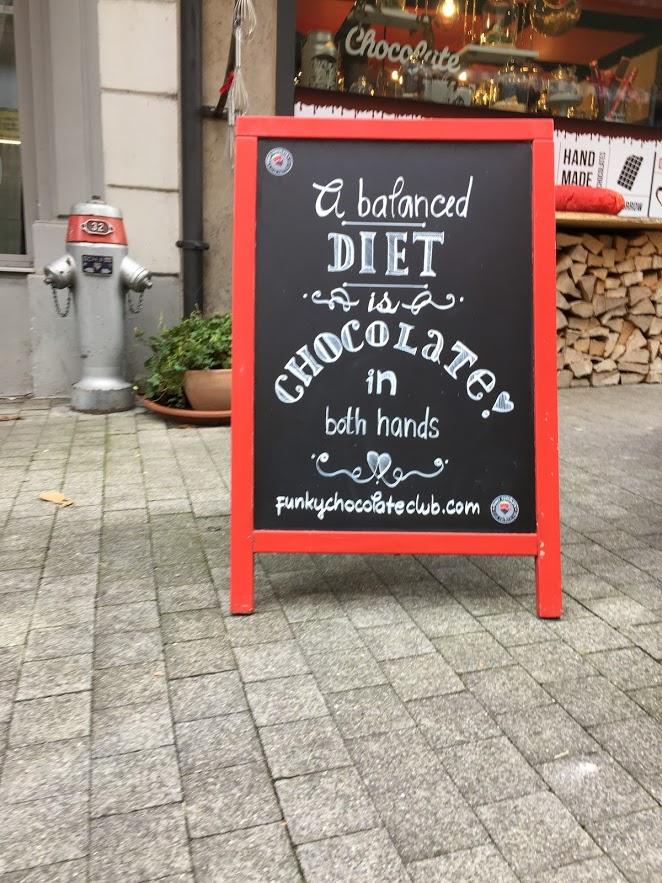 Chocolate
HAND
MADE
CHOCOLATES
32
A balanced
DIET
is
CHOCOLATE!
in
both hands
funkychocolateclub.com